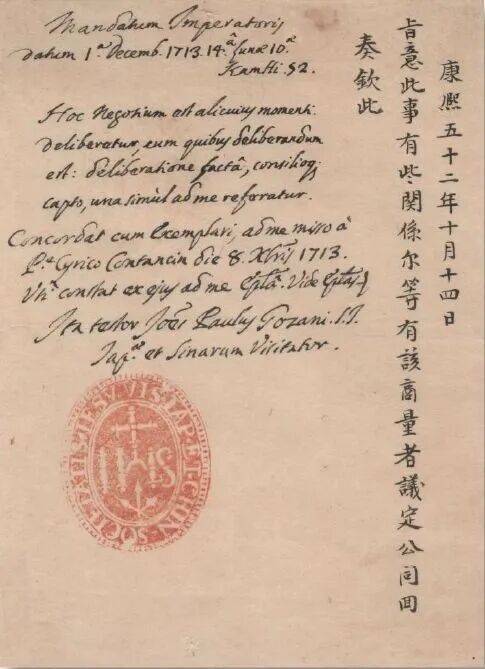 Mandatum Imperatoris
datum 1ª Decemb. 1713. 14ª Lunæ 10ª
Kamhi 52.
Hoc Negotium est alicuius momenti.
deliberatur, cum quibus deliberandum
est: deliberatione factâ, consilioq;
capto, una simùl ad me referatur.
Concordat cum Exemplari, ad me misso à
Pe. Cyrico Contancin die 8. Xbris 1713.
constat ex ejus ad me Vide
Ita testor Joes Paulus Gozani. S.J.
Iap. et Sinarum Visitator.
康熙五十二年十月十四日
旨意此事有些関係尔等有該商量者議定公同回
奏欽此
SOCIETATIS IESU VIS IAP ET CHIN
IHS